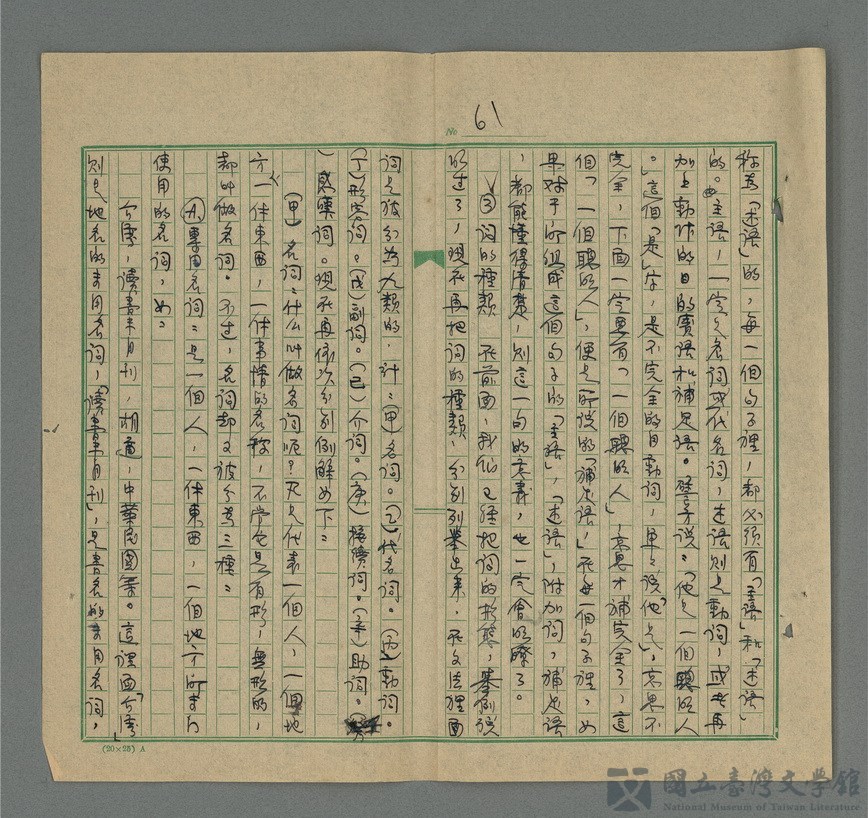 No 61
称為「述語」的，每一個句子裡，都必須有「主語」和「述語」
的。主語，一定是名詞或代名詞，述語則是動詞，或者再
加上動作的目的賓語和補足語。譬方說：「他是一個聰明人
。」這個「是」字，是不完全的自動詞，單單說「他是」，意思不
完全，下面一定要有「一個聰明人」，意思才補完全了，這
個「一個聰明人」，便是所說的「補足語」，在每一個句子裡，如
果对于所組成這個句子的「主語」，「述語」，附加詞，補足語
，都能懂得清楚，則這一句的意義，也一定會明瞭了。
③詞的種類 在前面，我們已經把詞的形態，舉例說
明过了，現在再把詞的種類，分別列舉出來，在文法裡面
詞是被分為九類的，計：(甲)名詞。(乙)代名詞。(丙)動詞。
(丁)形容詞。(戊)副詞。(己)介詞。(庚)接續詞。(辛)助詞。(
)感嘆詞。現在再依次分別例解如下：
(甲)名詞：什么叫做名詞呢？凡是代表一個人，一個地
方，一件東西，一件事情的名称，不管它是有形，無形的，
都叫做名詞。不过，名詞却又被分為三種：
A、專用名詞：是一個人，一件東西，一個地方所專門
使用的名詞，如：
台灣，讀書半月刊，胡適，中華民國等。這裡面「台灣」
則是地名的專用名詞，「讀書半月刊」，是書名的專用名詞，
(20×25) A
國立臺灣文學館
National Museum of Taiwan Literature